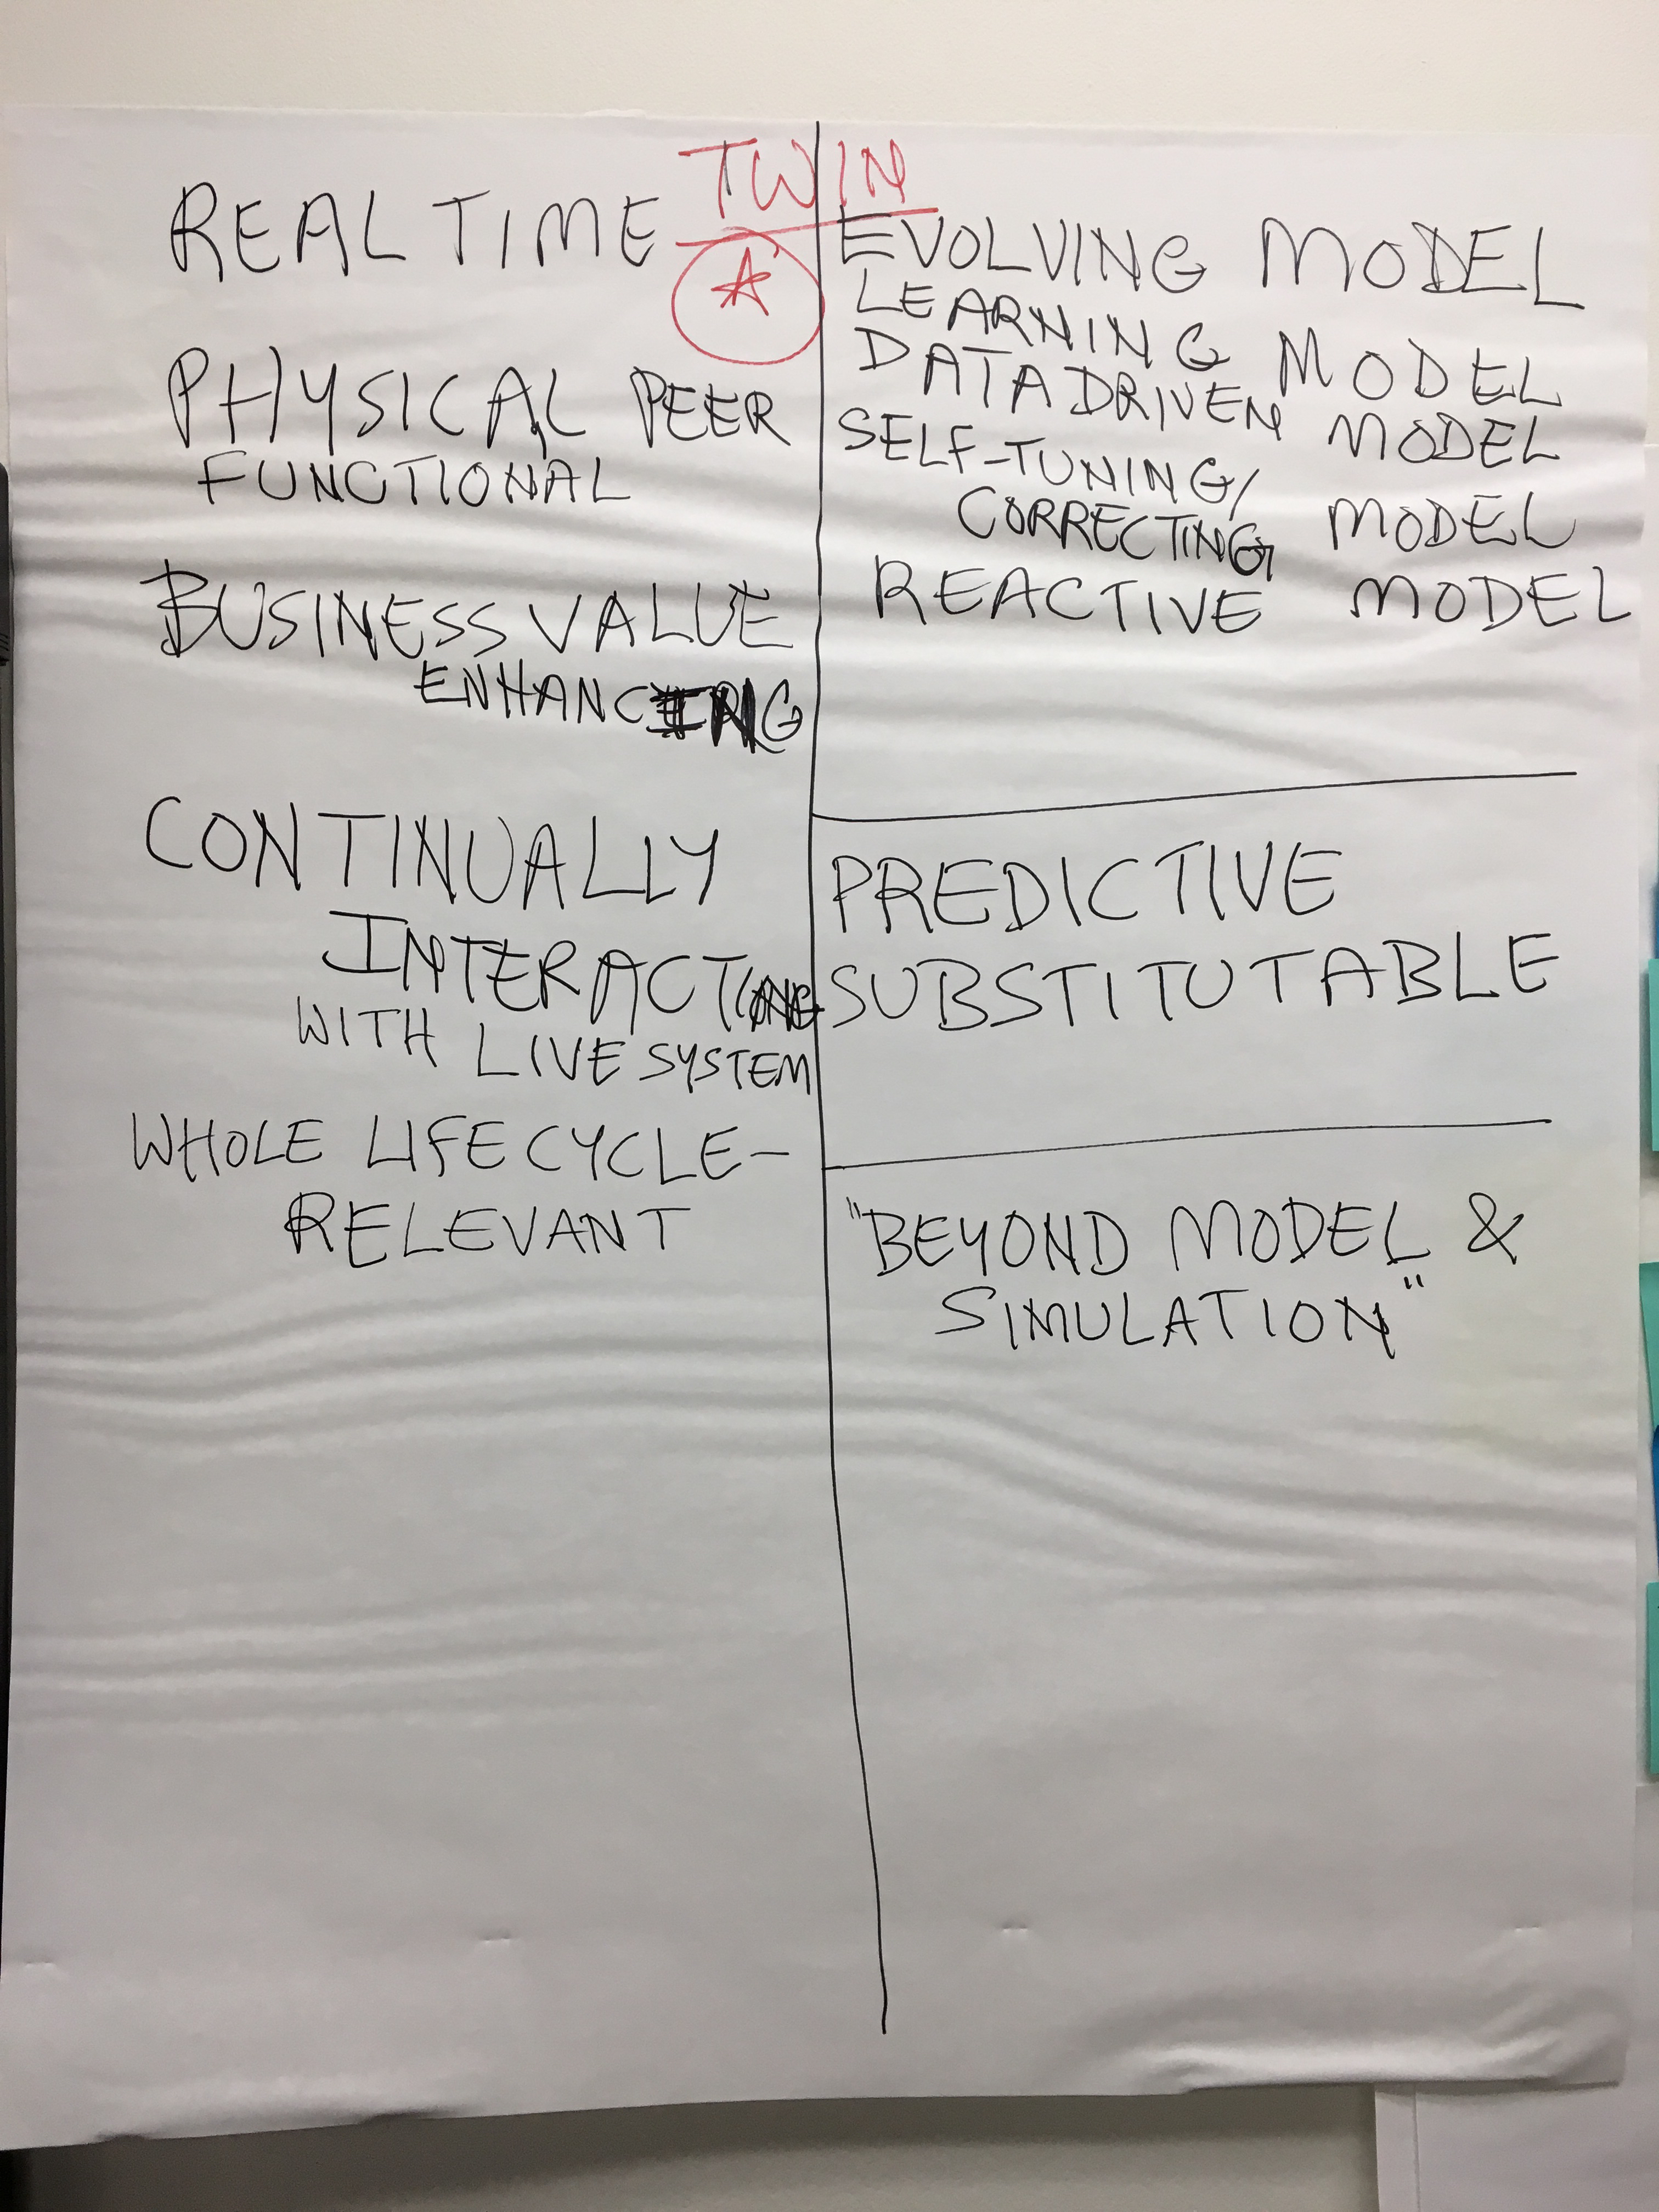 TWIN
A
REAL TIME
PHYSICAL PEER
FUNCTIONAL
BUSINESS VALUE
ENHANCING
CONTINUALLY
INTERACTING
WITH LIVE SYSTEM
WHOLE LIFECYCLE-
RELEVANT
EVOLVING MODEL
LEARNING MODEL
DATA DRIVEN MODEL
SELF-TUNING/
CORRECTING MODEL
REACTIVE MODEL
PREDICTIVE
SUBSTITUTABLE
"BEYOND MODEL &
SIMULATION"